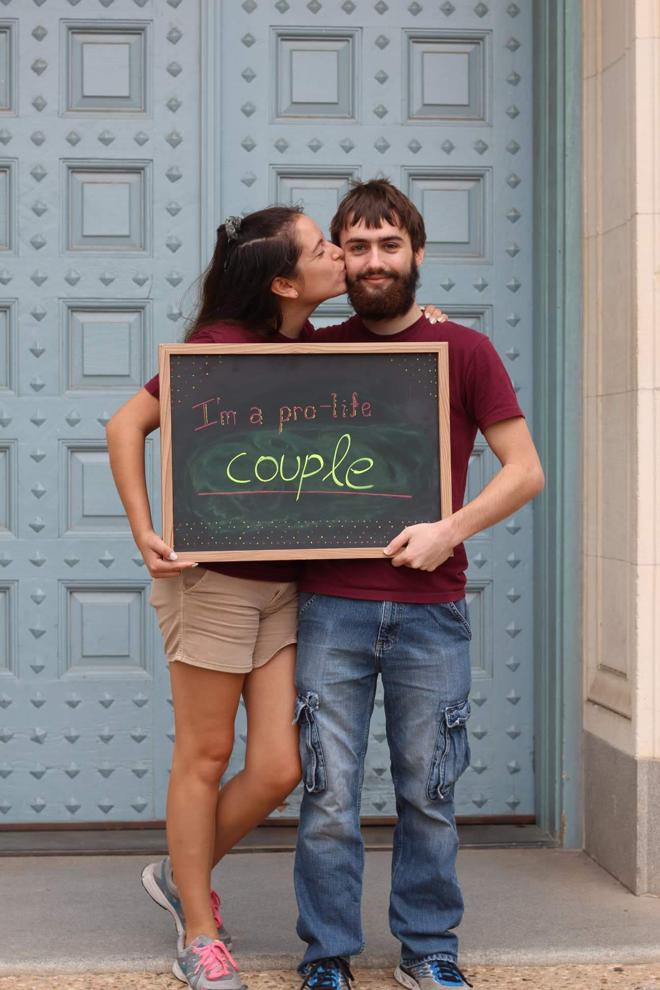 I'm a pro-life
couple